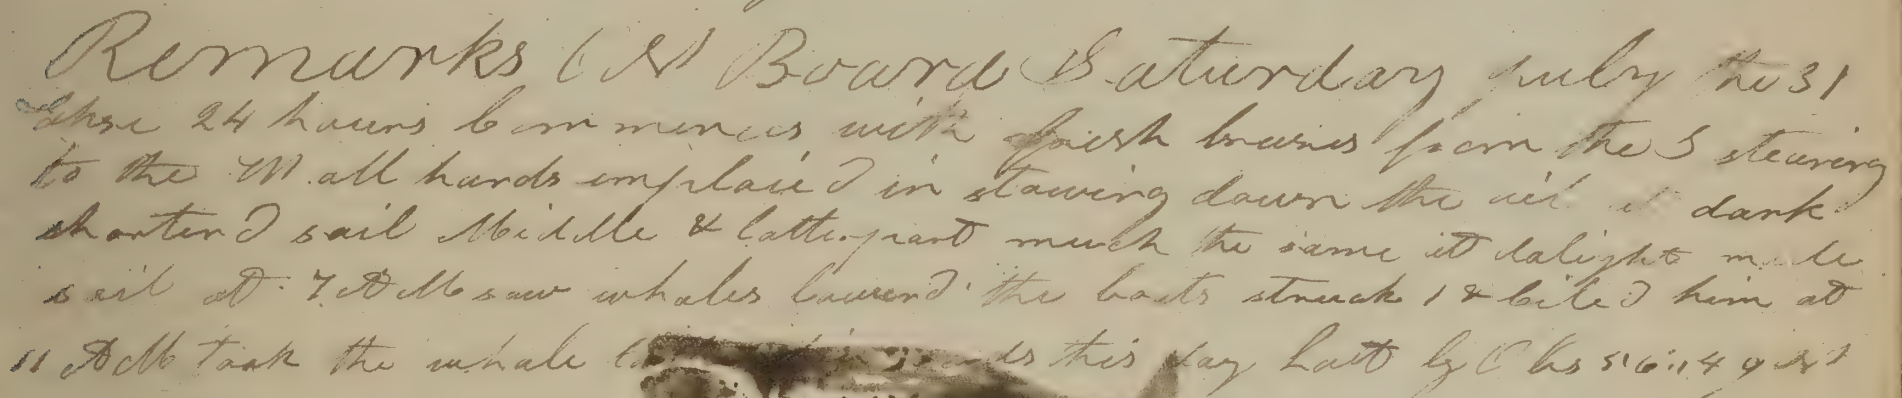 Remarks On Board Saturday July the 31
these 24 hours Commences with fresh breises from the S stearing
to the W all hands emplaied in stowing down the oil at dark
shortend sail Middle & latter part much the same at dalight made
sail at 7 AM saw whales lowerd the boats struck 1 & kiled him at
11 AM took the whale this day Latt by Obs 56:49 N